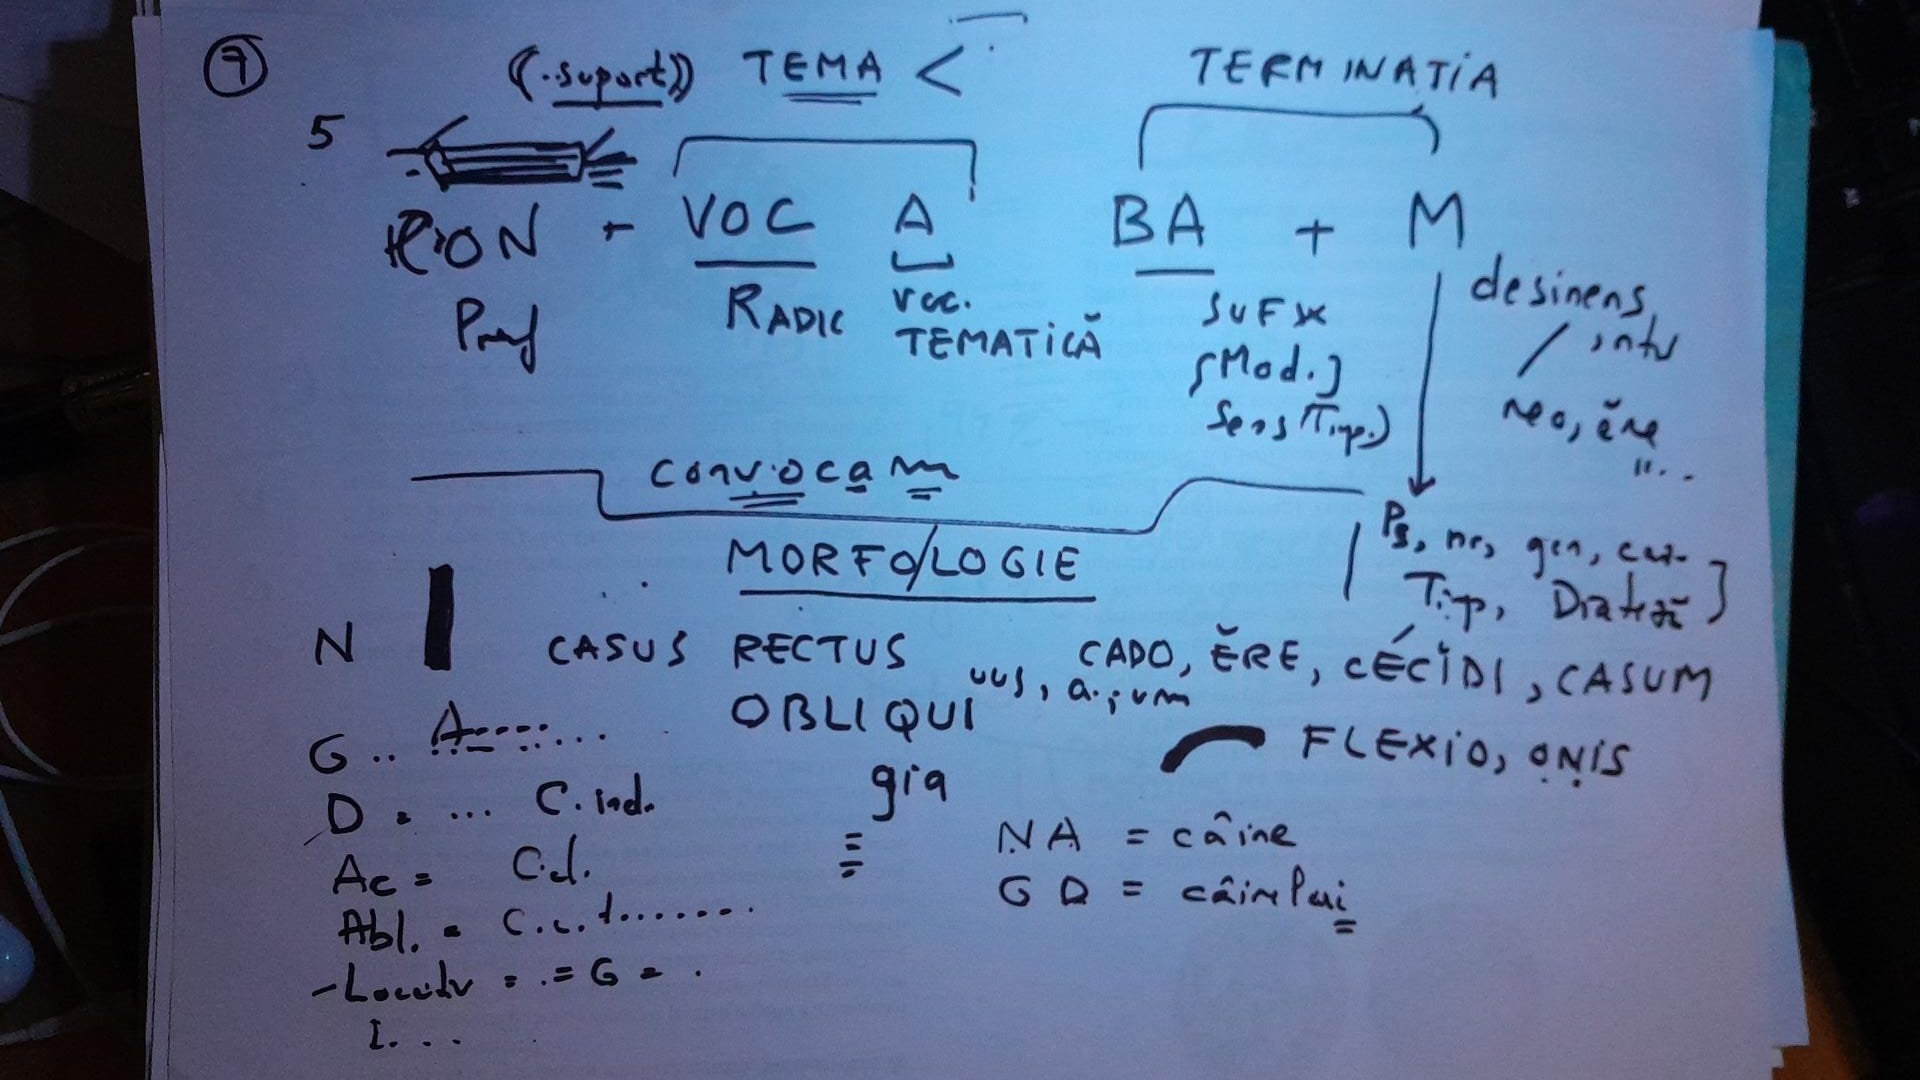 7
(.suport)) TEMA < TERMINATIA
5
CON + VOC A BA + M
Pref RADIC voc. TEMATICĂ
SUFIX [Mod.]
Sens (Timp.)
desinens, / intu
neo, ĕre
convocam
MORFOLOGIE
Ps, nr, gen, caz.
Timp, Diateză]
N CASUS RECTUS uus, a, um CADO, ĔRE, CÉCĬDI, CASUM
G.. A....... OBLIQUI FLEXIO, ONIS
D = ... C. ind. gia
Ac = C.d. NA = câine
Abl. = C.c.t....... GD = câinelui
- Locativ = .= G = .
I. . .